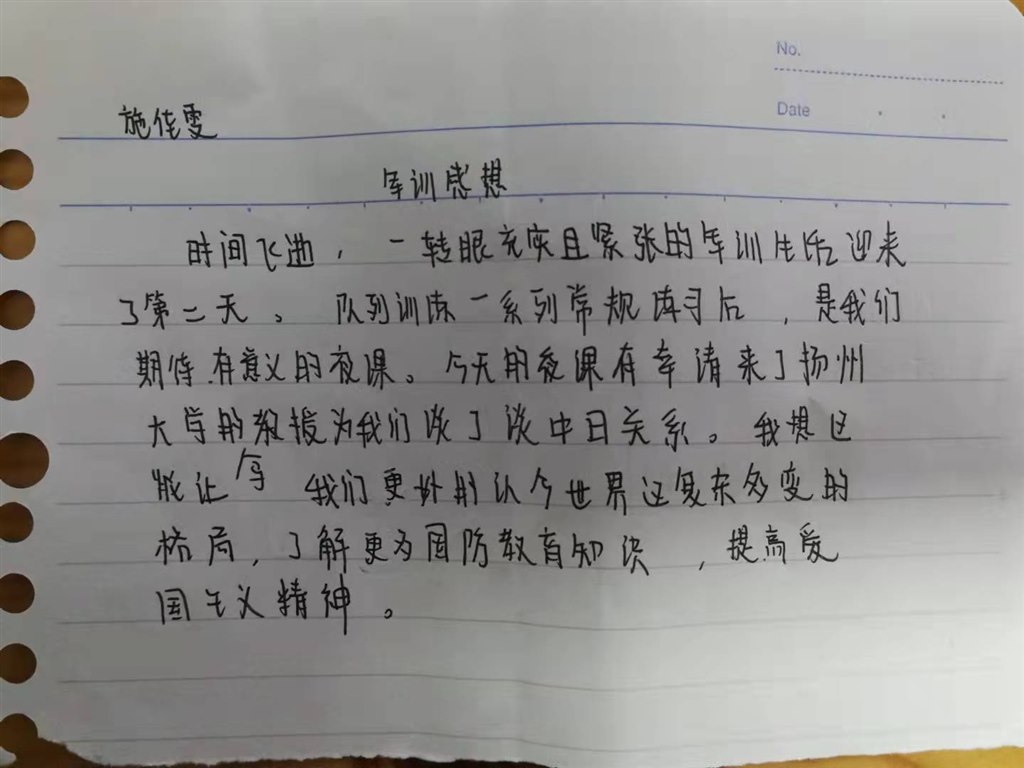 No.
Date
施佳雯
军训感想
时间飞逝，一转眼充实且紧张的军训生活迎来
了第二天。队列训练一系列常规练习后，是我们
期待有意义的夜课。今天的夜课有幸请来了扬州
大学的教授为我们谈了谈中日关系。我想这
能让 我们更好的认今世界这复杂多变的
格局，了解更为国防教育知识，提高爱
国主义精神。